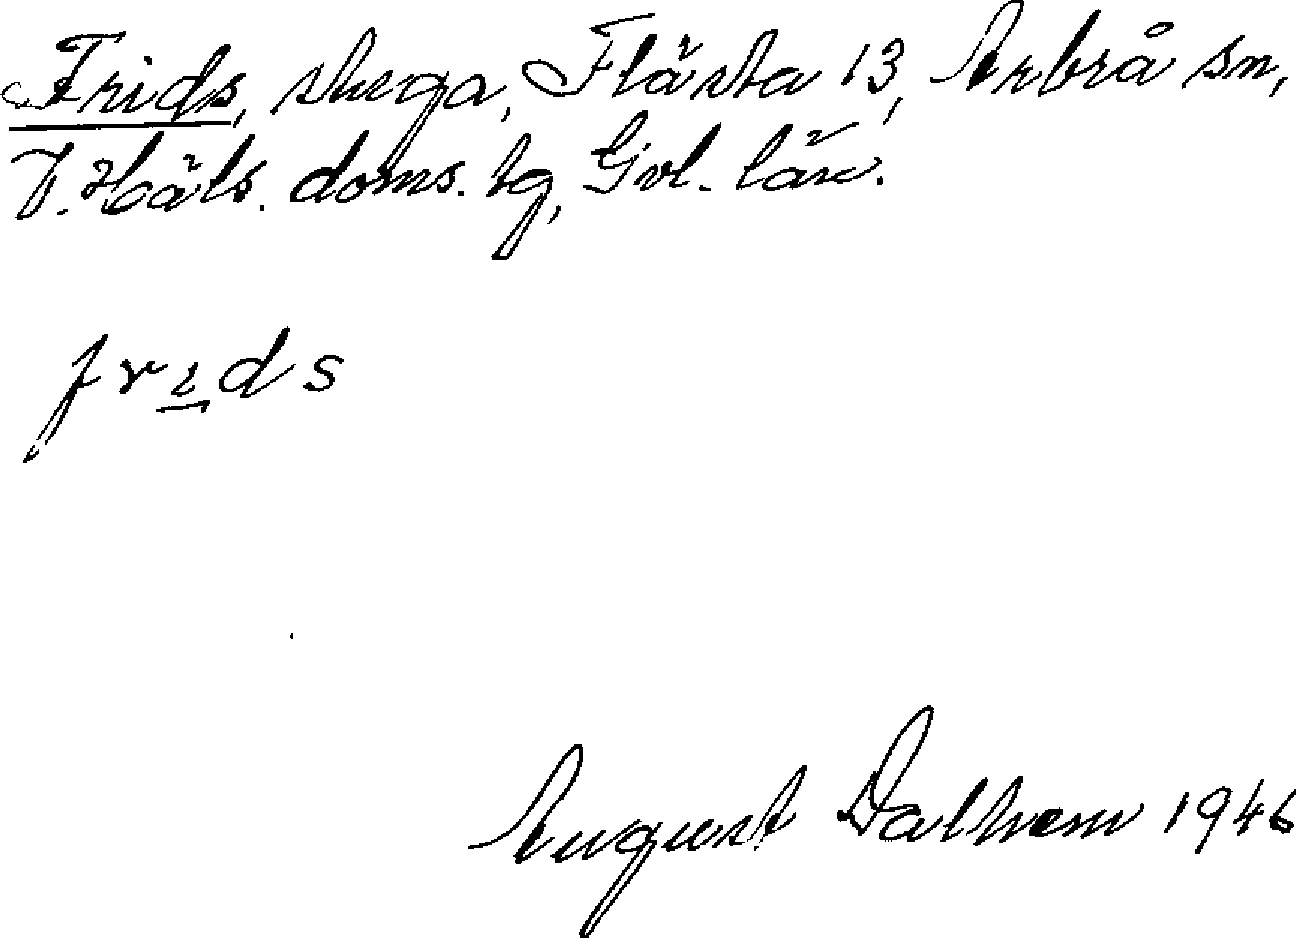 Frids, stuga, Flästa 13, Arbrå sn,
V. Häls. doms. tg, Gvl. län.
frids
August Dalhem 1946